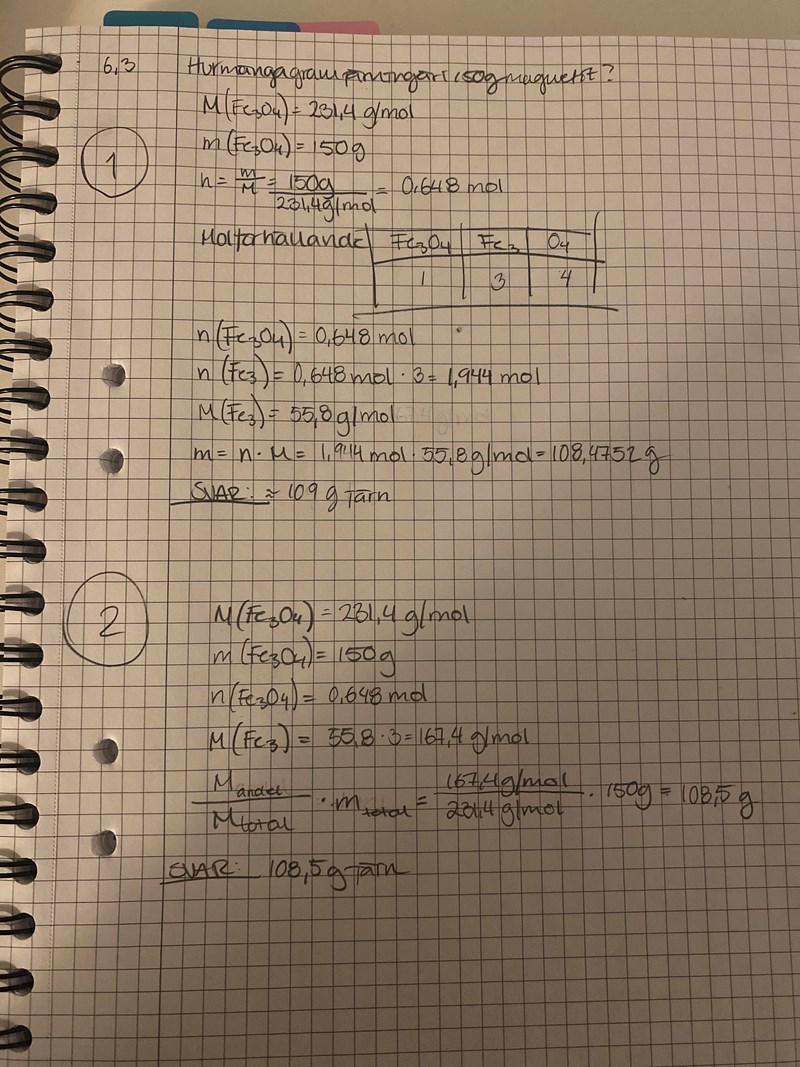 6,3 Hur många gram järn ingår i 150g magnetit?
M(Fe3O4) = 231,4 g/mol
m(Fe3O4) = 150g
1
n = m/M = 150g/231,4g/mol = 0,648 mol
Molförhållande Fe3O4 Fe3 O4
1 3 4
n(Fe3O4) = 0,648 mol
n(Fe3) = 0,648 mol · 3 = 1,944 mol
M(Fe3) = 55,8 g/mol
m = n · M = 1,944 mol · 55,8 g/mol = 108,4752 g
SVAR: ≈ 109 g järn
2
M(Fe3O4) = 231,4 g/mol
m(Fe3O4) = 150g
n(Fe3O4) = 0,648 mol
M(Fe3) = 55,8 · 3 = 167,4 g/mol
Mandel/Mtotal · mtotal = 167,4g/mol/231,4 g/mol · 150g = 108,5 g
SVAR: 108,5 g järn